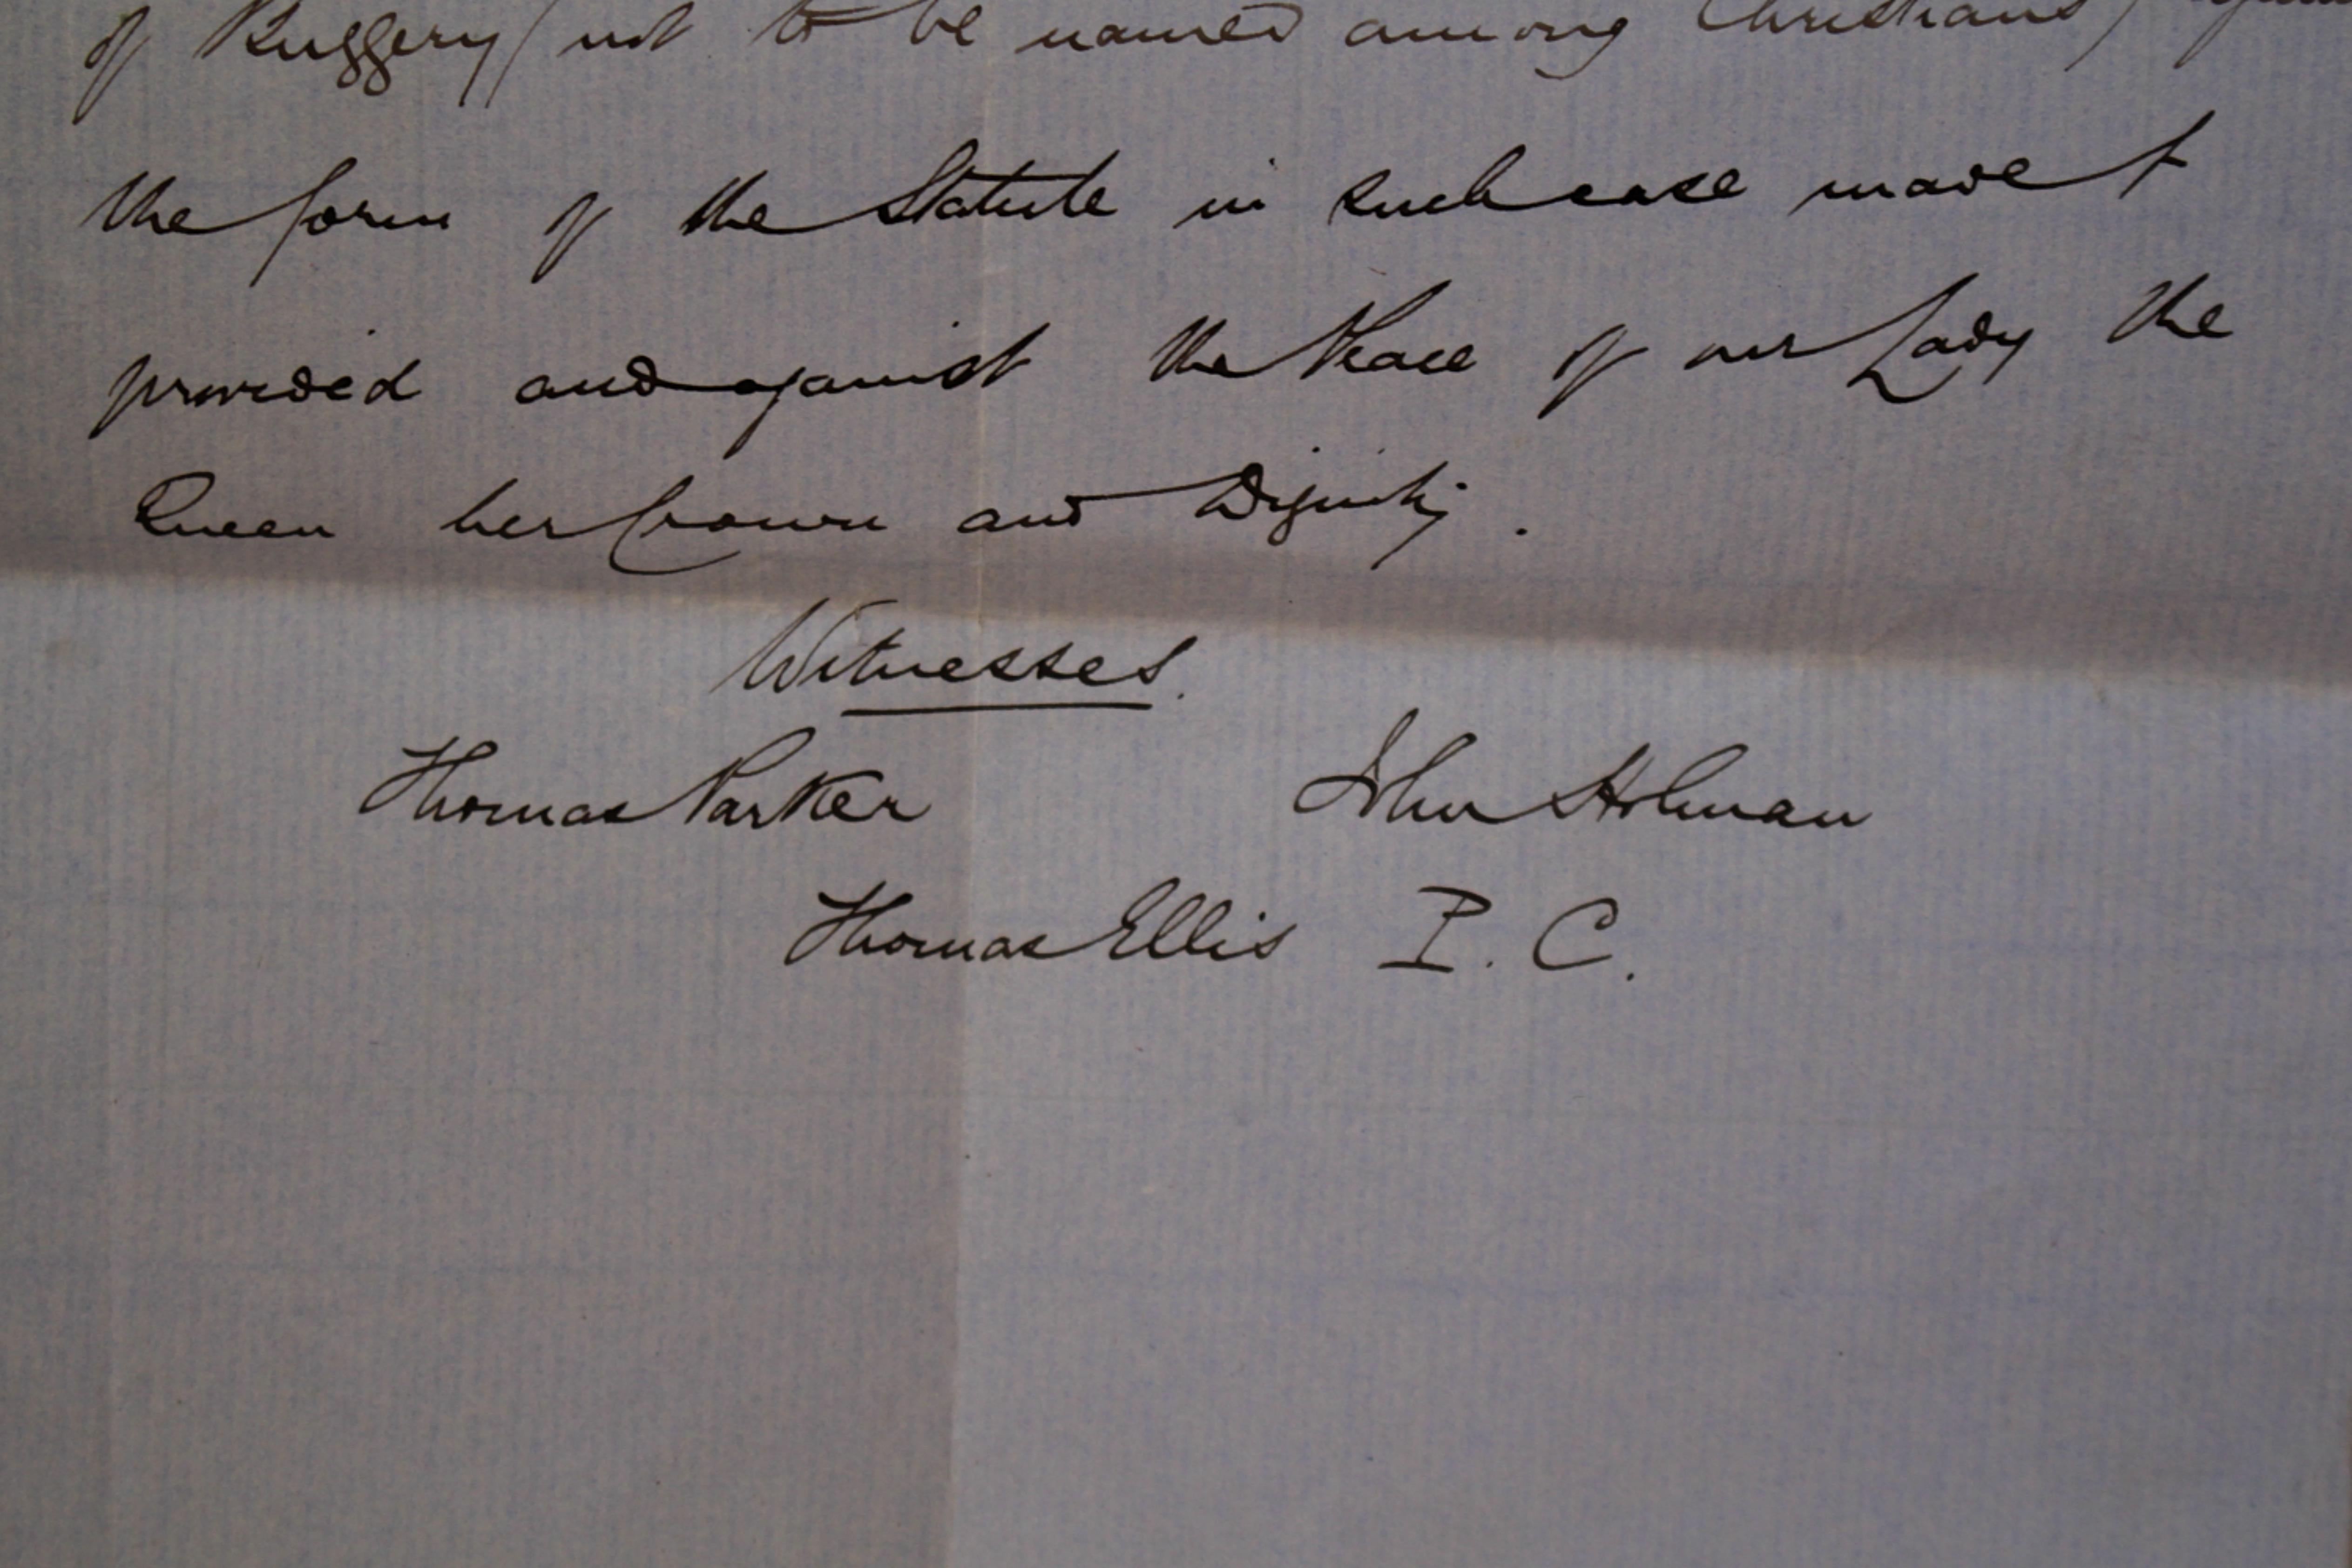 of Buggery (not to be named among Christians)
the form of the Statute in such case made +
provided and against the Peace of our Lady the
Queen her Crown and Dignity.
Witnesses.
Thomas Parker John Holman
Thomas Ellis P. C.